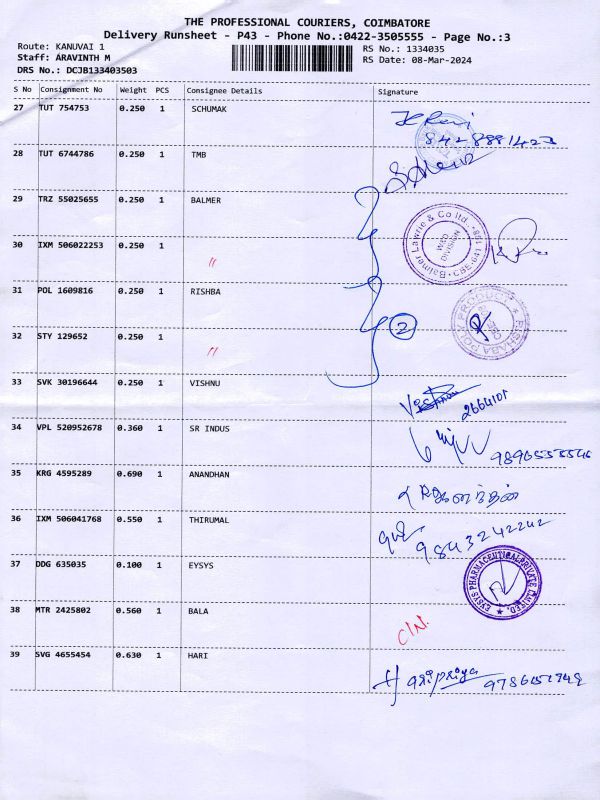 THE PROFESSIONAL COURIERS, COIMBATORE
Delivery Runsheet - P43 - Phone No.:0422-3505555 - Page No.:3
Route: KANUVAI 1
Staff: ARAVINTH M
DRS No.: DCJB133403503
RS No.: 1334035
RS Date: 08-Mar-2024
S No Consignment No Weight PCS Consignee Details Signature
27 TUT 754753 0.250 1 SCHUMAK
8428881423
28 TUT 6744786 0.250 1 TMB
29 TRZ 55025655 0.250 1 BALMER
Balmer Lawrie & Co ltd.
DIVISION
30 IXM 506022253 0.250 1 〃
31 POL 1609816 0.250 1 RISHBA
RISHABA POLY PRODUCTS
2
32 STY 129652 0.250 1 〃
33 SVK 30196644 0.250 1 VISHNU
2664101
34 VPL 520952678 0.360 1 SR INDUS
9890555546
35 KRG 4595289 0.690 1 ANANDHAN
36 IXM 506041768 0.550 1 THIRUMAL
9843242242
37 DDG 635035 0.100 1 EYSYS
EYSYS PHARMACEUTICAL PRIVATE LIMITED.
38 MTR 2425802 0.560 1 BALA
C/N.
39 SVG 4655454 0.630 1 HARI
Haripriya